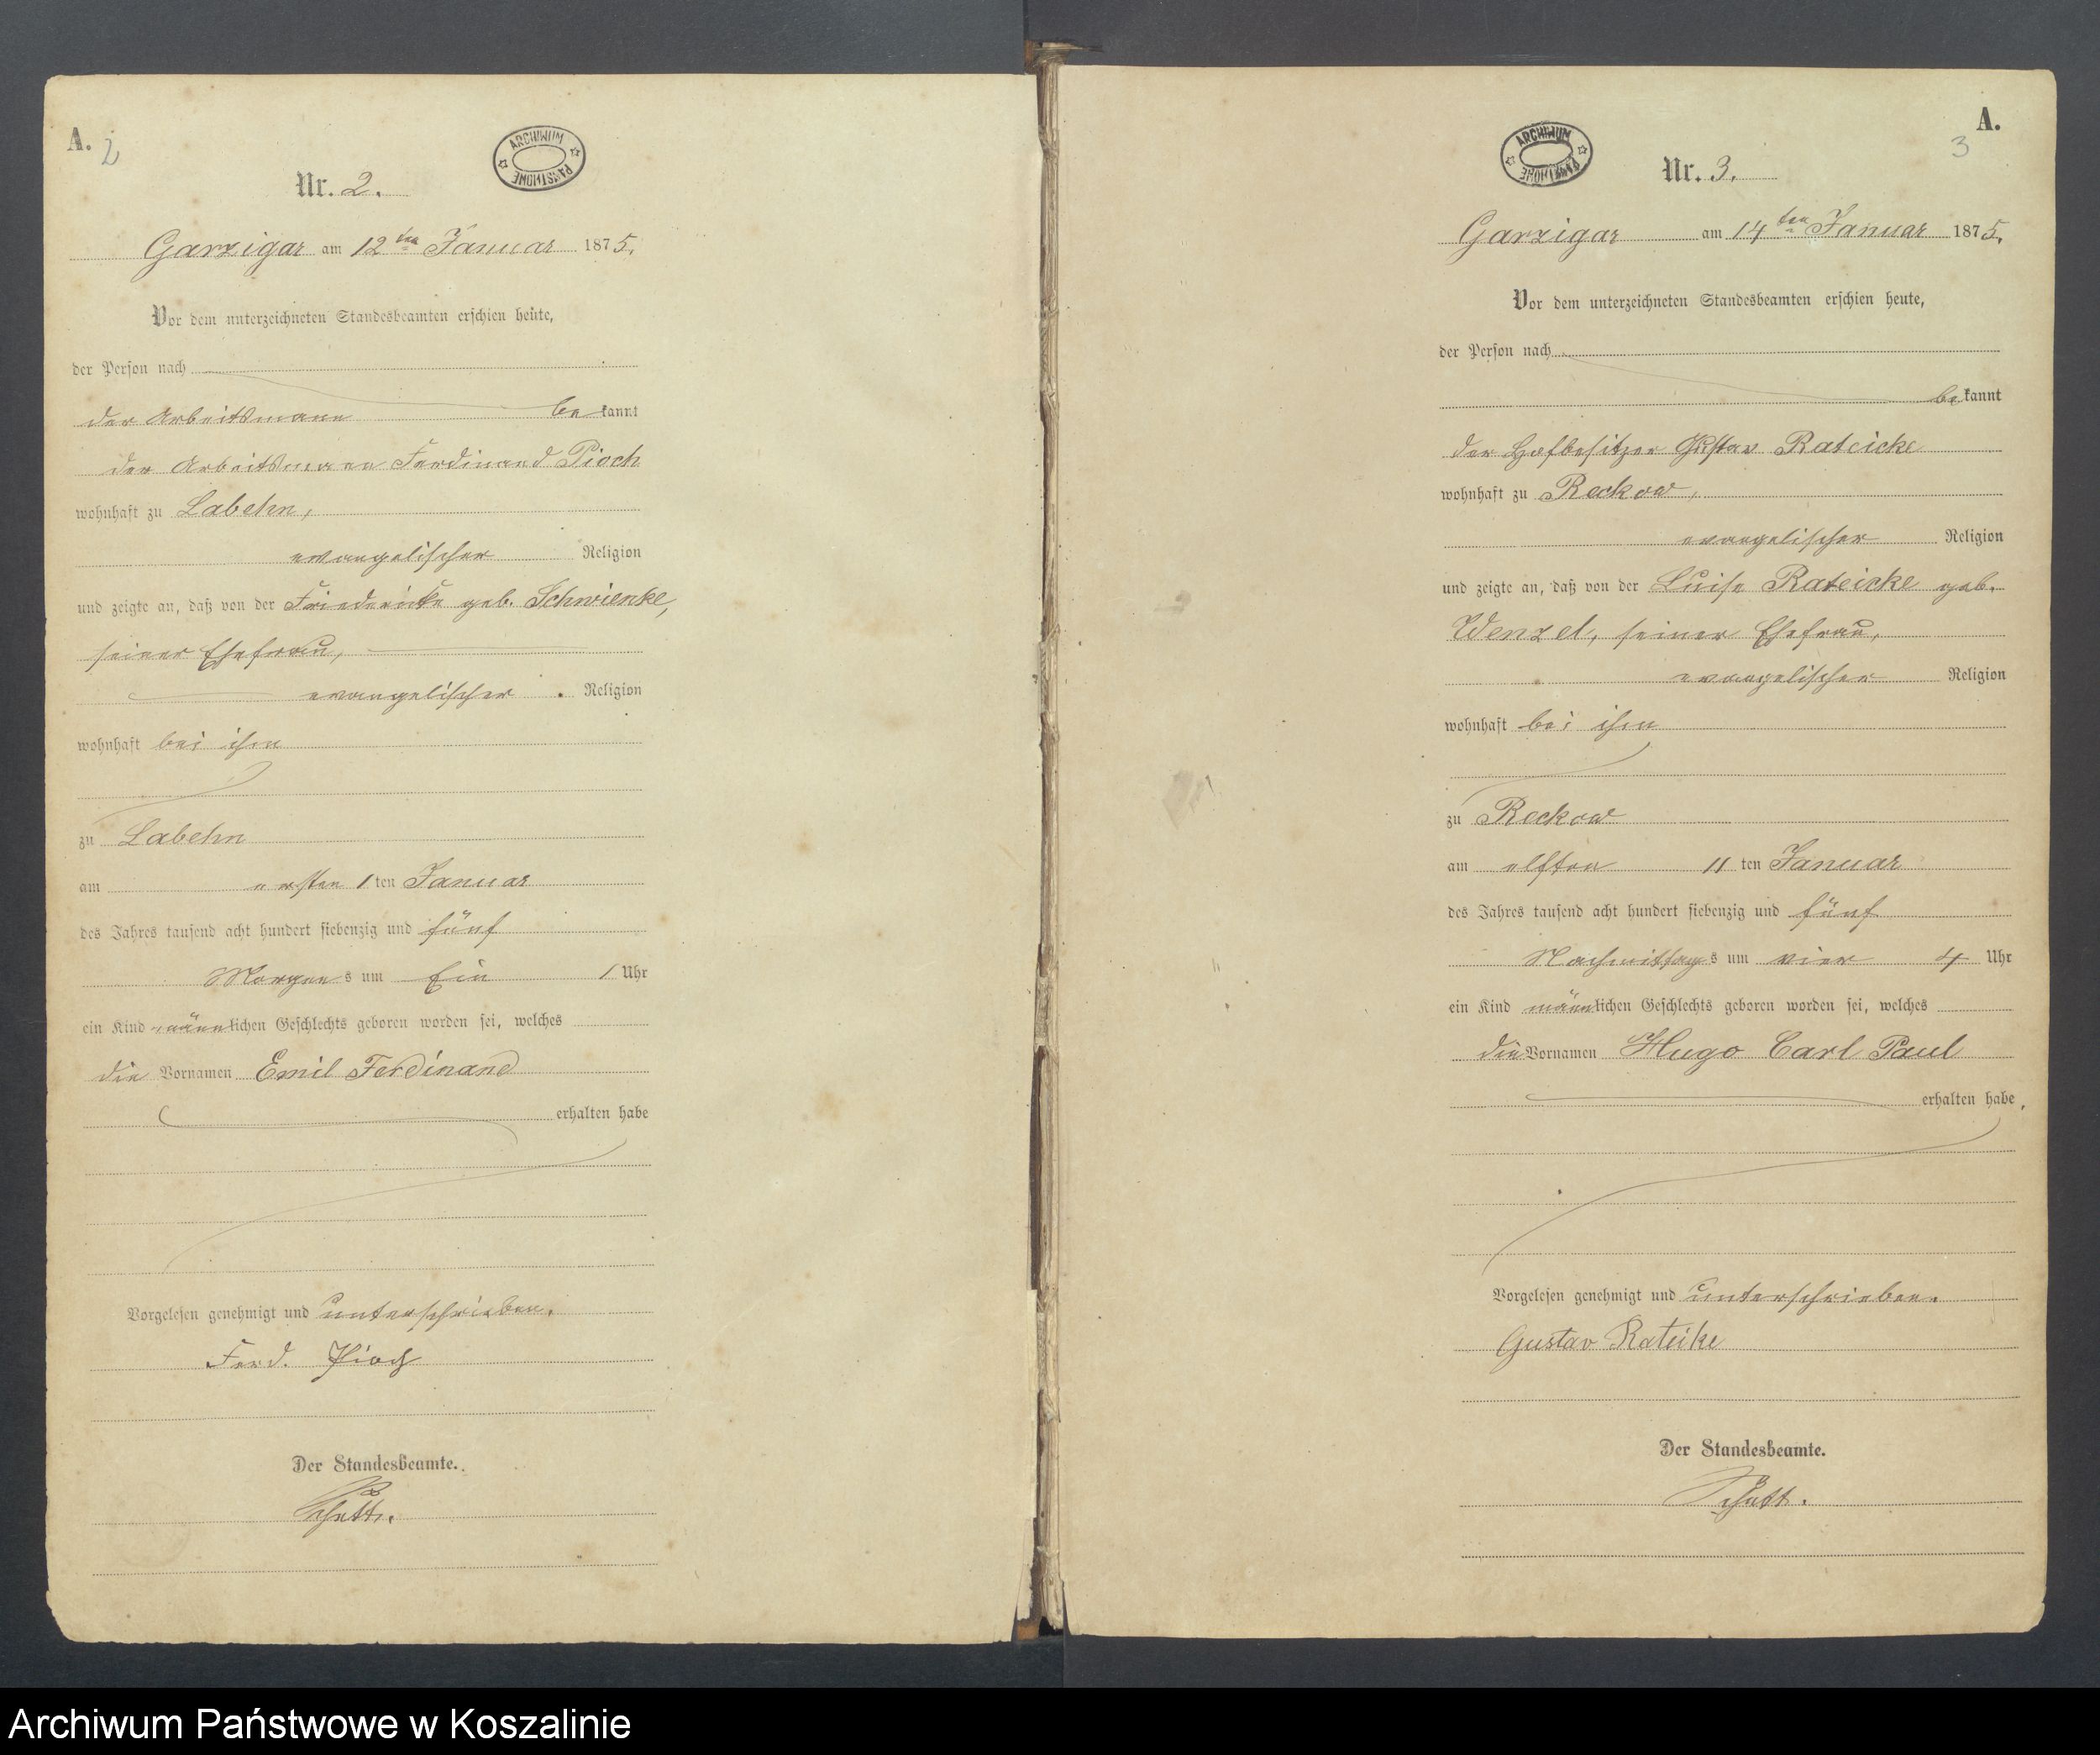 A. 2
ARCHIWUM PAŃSTWOWE
Nr. 2.
Garzigar am 12ten Januar 1875.
Vor dem unterzeichneten Standesbeamten erschien heute,
der Person nach
der Arbeitsmann bekannt
der Arbeitsmann Ferdinand Pioch
wohnhaft zu Labehn,
evangelischer Religion
und zeigte an, daß von der Friederike geb. Schwienke,
seiner Ehefrau,
evangelischer Religion
wohnhaft bei ihm
zu Labehn
am ersten 1 ten Januar
des Jahres tausend acht hundert siebenzig und fünf
Morgens um Ein 1 Uhr
ein Kind männlichen Geschlechts geboren worden sei, welches
die Vornamen Emil Ferdinand
erhalten habe
Vorgelesen genehmigt und unterschrieben.
Ferd. Pioch
Der Standesbeamte.
A.
3
ARCHIWUM PAŃSTWOWE
Nr. 3.
Garzigar am 14ten Januar 1875.
Vor dem unterzeichneten Standesbeamten erschien heute,
der Person nach
bekannt
der Hofbesitzer Gustav Rateicke
wohnhaft zu Reckow,
evangelischer Religion
und zeigte an, daß von der Luise Rateicke geb.
Wenzel, seiner Ehefrau,
evangelischer Religion
wohnhaft bei ihm
zu Reckow
am elften 11 ten Januar
des Jahres tausend acht hundert siebenzig und fünf
Nachmittags um vier 4 Uhr
ein Kind männlichen Geschlechts geboren worden sei, welches
die Vornamen Hugo Carl Paul
erhalten habe.
Vorgelesen genehmigt und unterschrieben.
Gustav Rateike
Der Standesbeamte.
Archiwum Państwowe w Koszalinie